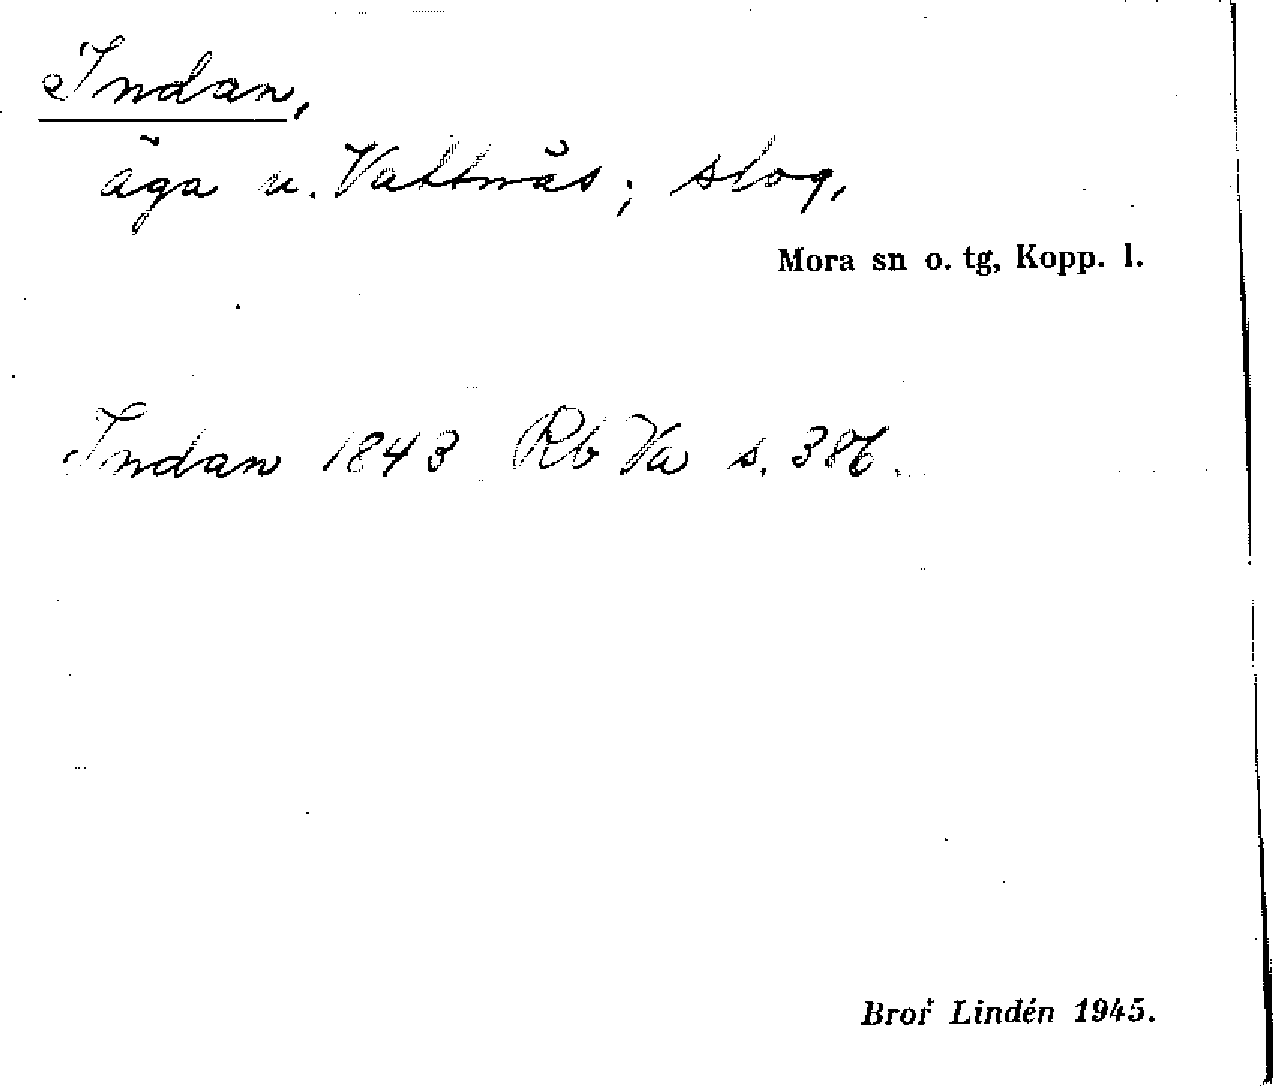 Indan,
äga u. Vattnäs; slog.
Mora sn o. tg, Kopp. l.
Indan 1843 Rb Va s. 386.
Bror Lindén 1945.